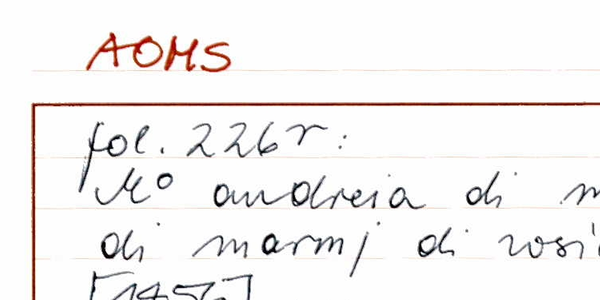 AOMS
fol. 226r:
Mo andreia di
di marmj di
[1456]